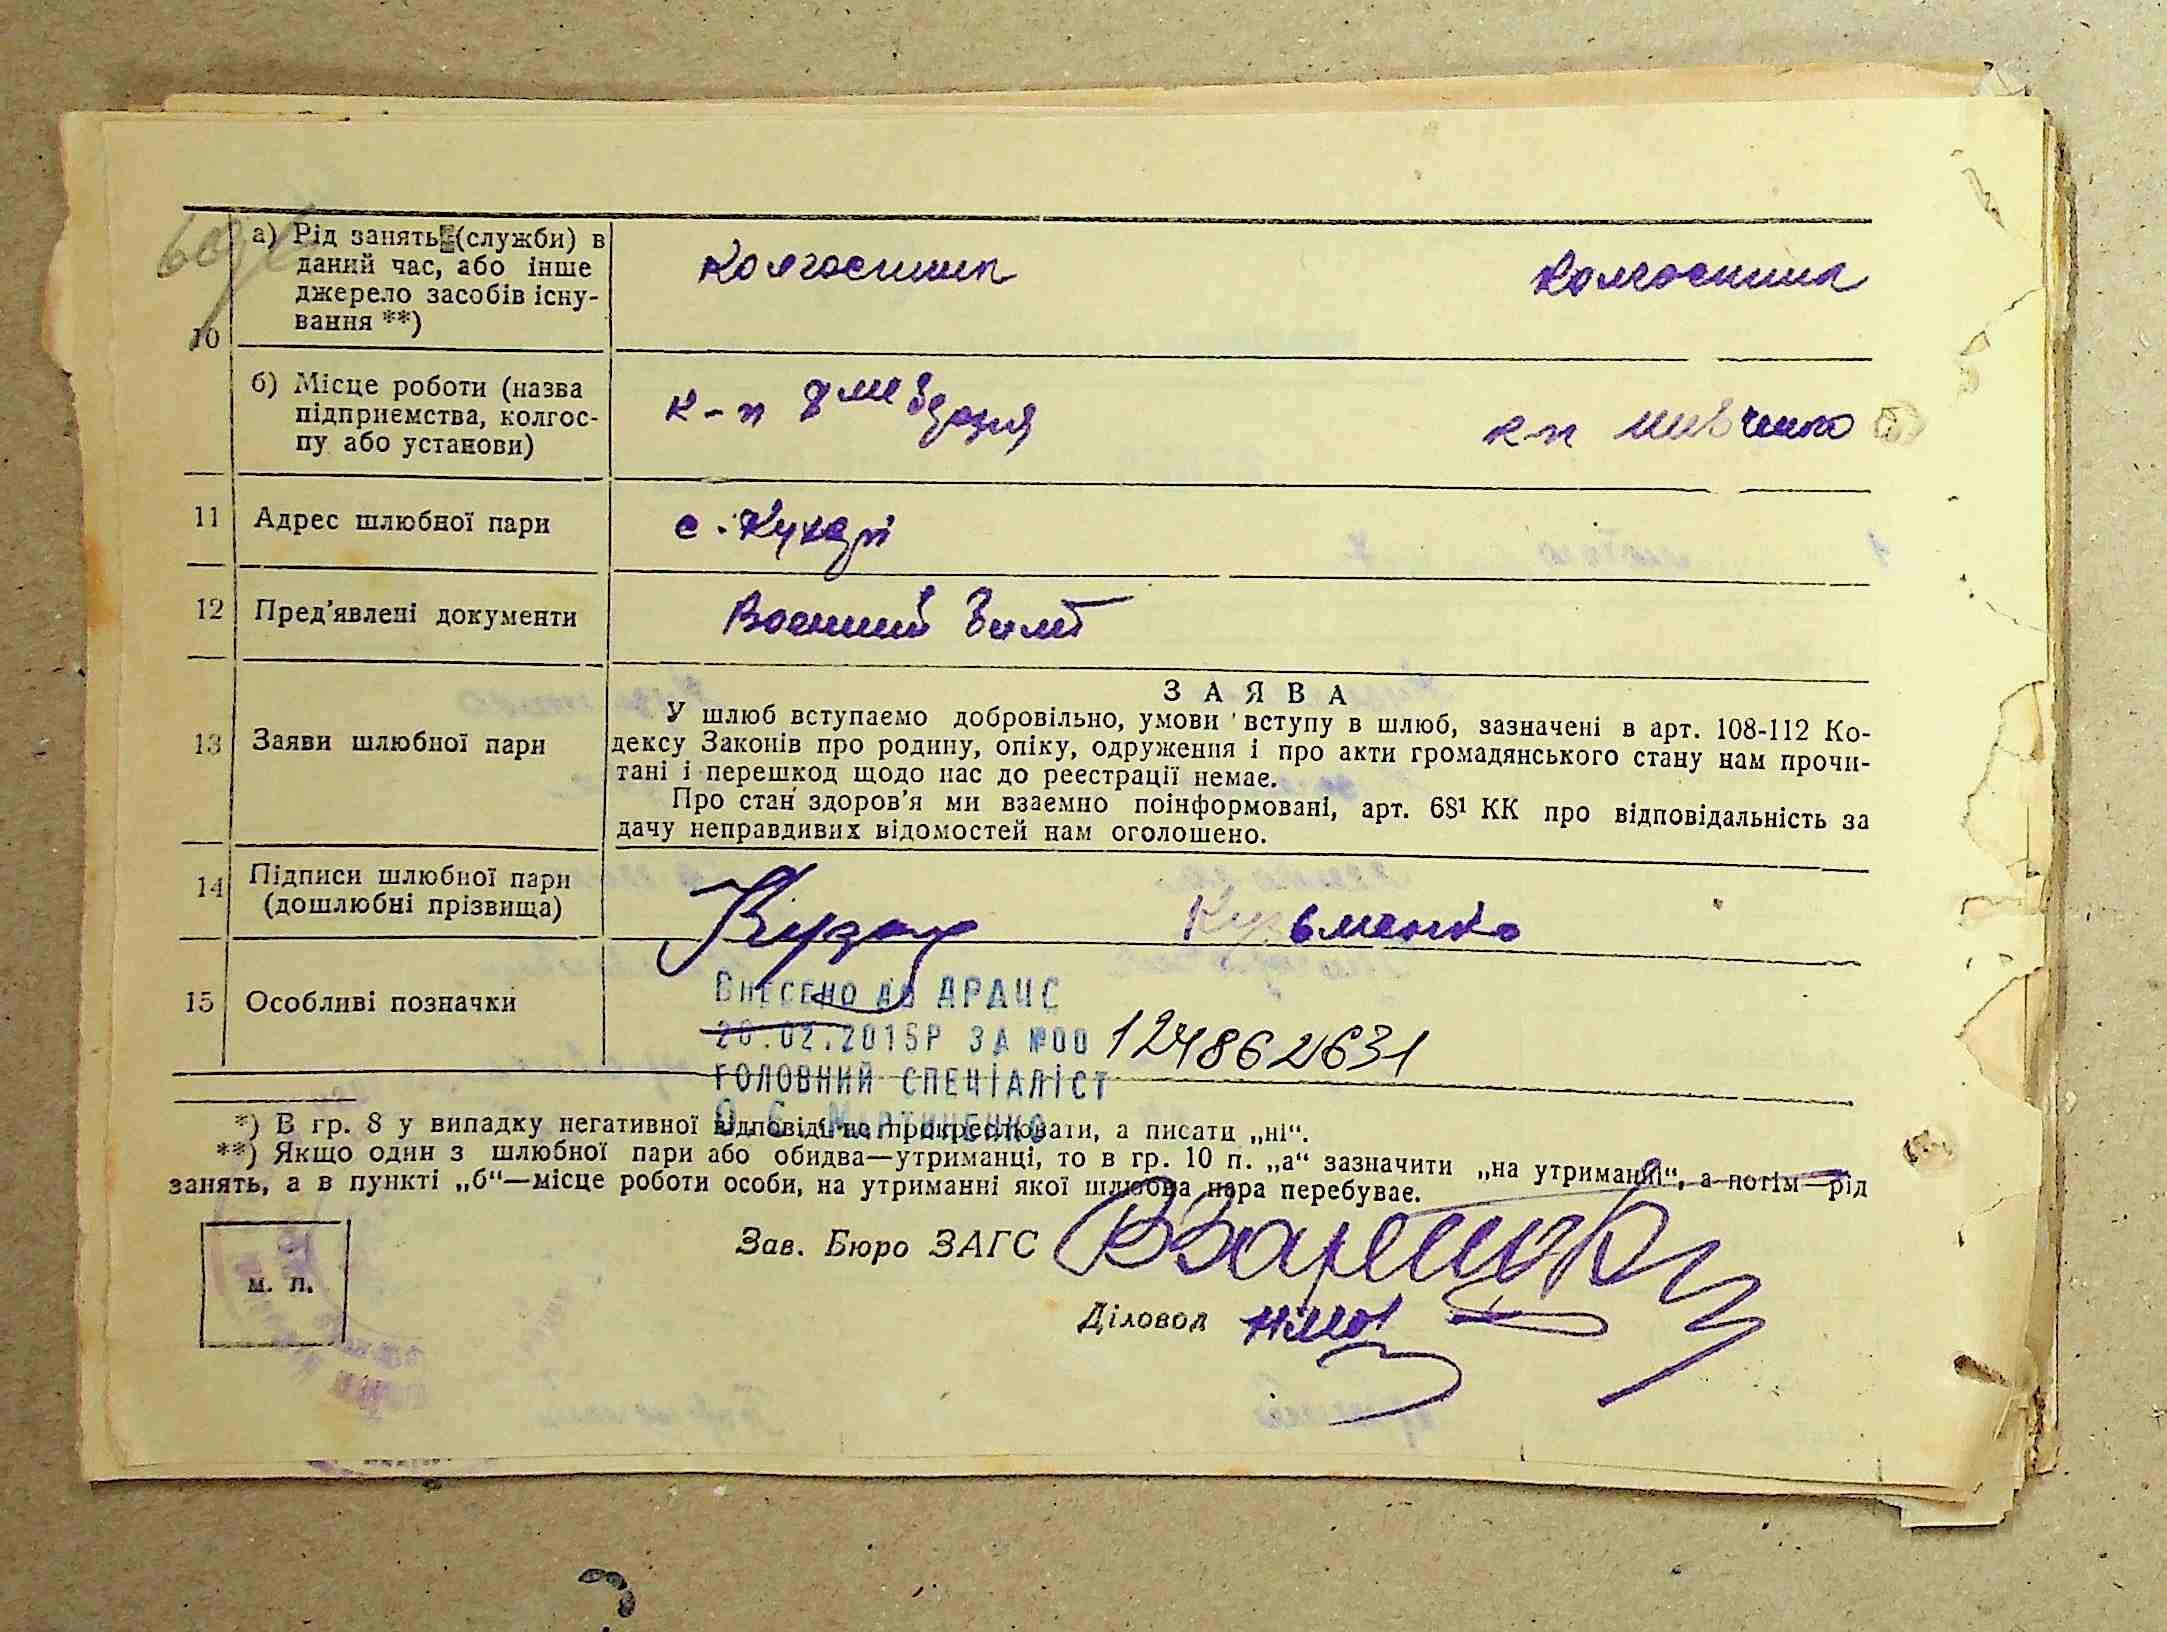 а) Рід занять (служби) в
даний час, або інше
джерело засобів існу-
вання **)
10
Колгоспник
Колгоспник
б) Місце роботи (назва
підприємства, колгос-
пу або установи)
к-п
к-п Шевченко
11 Адрес шлюбної пари
с. Кухарі
12 Пред'явлені документи
Военний билет
13 Заяви шлюбної пари
ЗАЯВА
У шлюб вступаємо добровільно, умови вступу в шлюб, зазначені в арт. 108-112 Ко-
дексу Законів про родину, опіку, одруження і про акти громадянського стану нам прочи-
тані і перешкод щодо нас до реєстрації немає.
Про стан здоров'я ми взаємно поінформовані, арт. 68¹ КК про відповідальність за
дачу неправдивих відомостей нам оголошено.
14 Підписи шлюбної пари
(дошлюбні прізвища)
Кузьменко
15 Особливі позначки
ВНЕСЕНО ДО ДРАЦС
20.02.2015Р ЗА №00 124862631
ГОЛОВНИЙ СПЕЦІАЛІСТ
О. Є. МАРТИНЕНКО
*) В гр. 8 у випадку негативної відповіді не прокреслювати, а писати „ні“.
**) Якщо один з шлюбної пари або обидва—утриманці, то в гр. 10 п. „а“ зазначити „на утриманні“, а потім—рід
занять, а в пункті „б“—місце роботи особи, на утриманні якої шлюбна пара перебуває.
Зав. Бюро ЗАГС
м. п.
Діловод